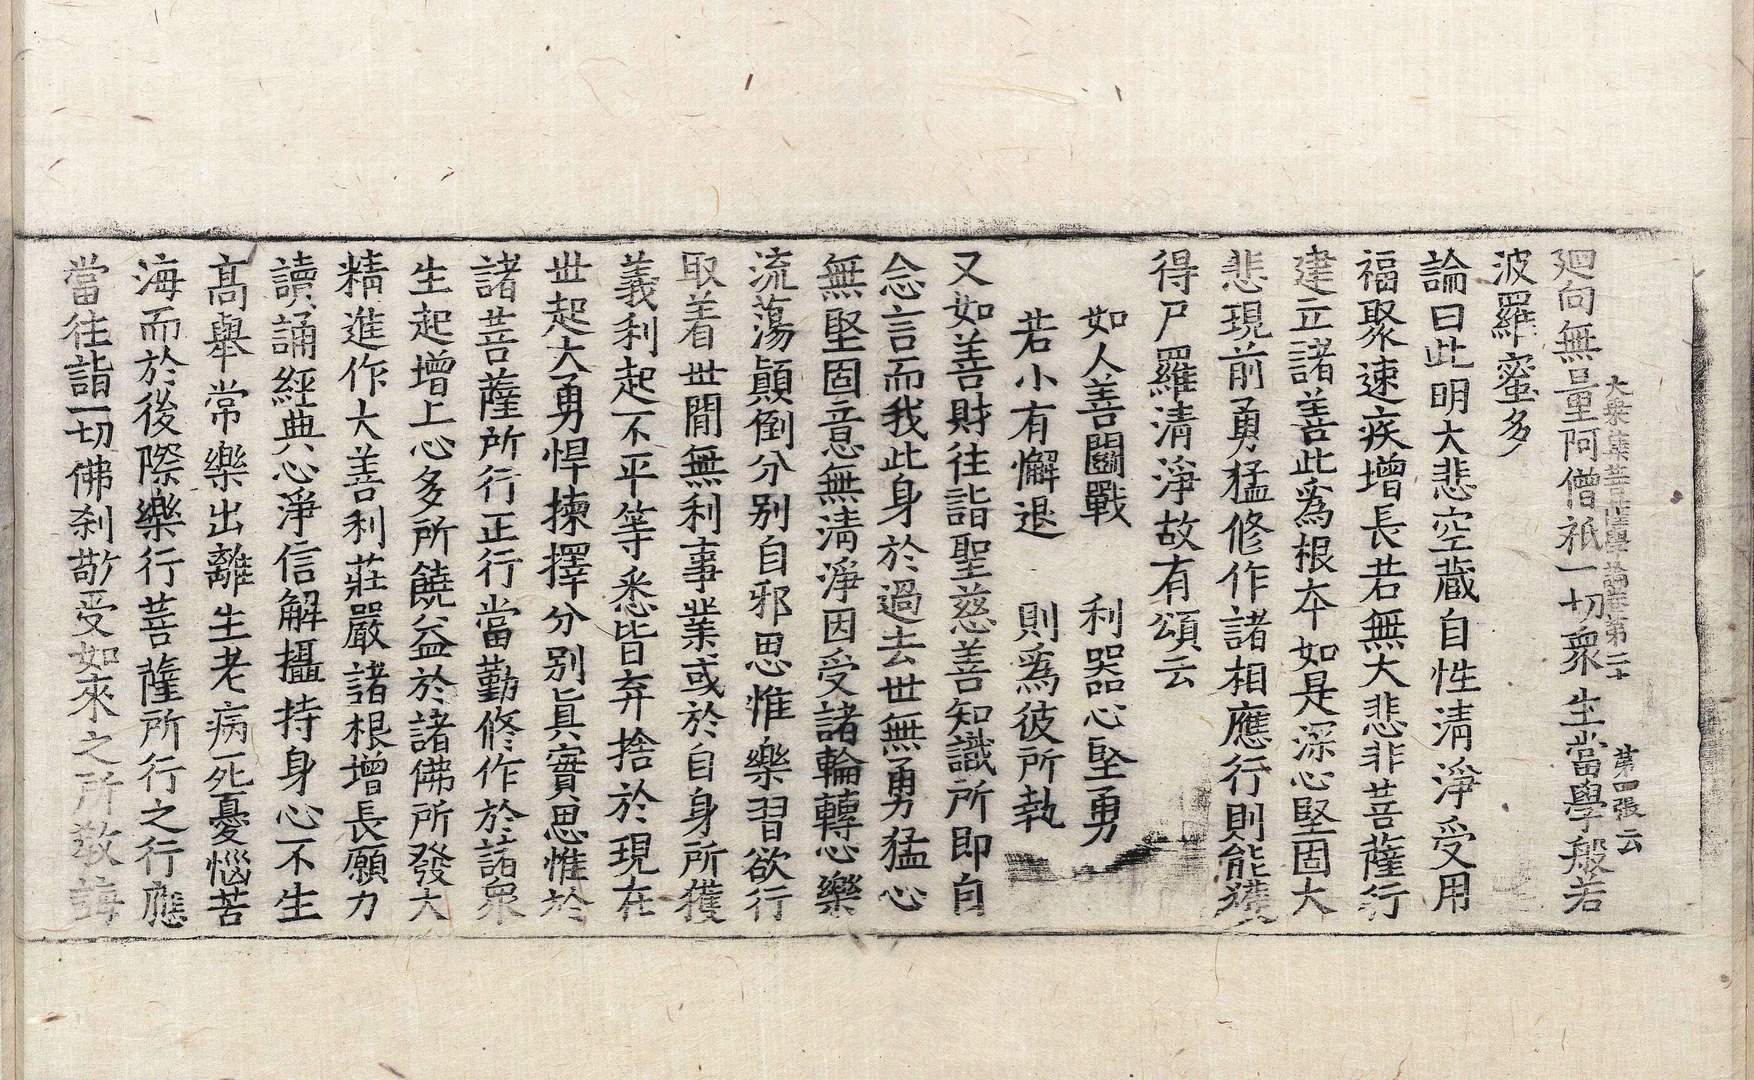 大乘集菩薩學論卷第二十 第四張 云
廻向無量阿僧祇一切衆生當學般若
波羅蜜多
論曰此明大悲空藏自性清淨受用
福聚速疾增長若無大悲非菩薩行
建立諸善此爲根夲如是深心堅固大
悲現前勇猛修作諸相應行則能獲
得尸羅清淨故有頌云
如人善鬭戰 利器心堅勇
若小有懈退 則爲彼所執
又如善財往詣聖慈善知識所即自
念言而我此身於過去世無勇猛心
無堅固意無清淨因受諸輪轉心樂
流蕩顚倒分别自邪思惟樂習欲行
取着世間無利事業或於自身所獲
義利起不平等悉皆弃捨於現在
世起大勇悍揀擇分别眞實思惟於
諸菩薩所行正行當勤修作於諸衆
生起增上心多所饒益於諸佛所發大
精進作大善利莊嚴諸根增長願力
讀誦經典心淨信解攝持身心不生
高舉常樂出離生老病死憂惱苦
海而於後際樂行菩薩所行之行應
當往詣一切佛刹敬受如來之所敎誨